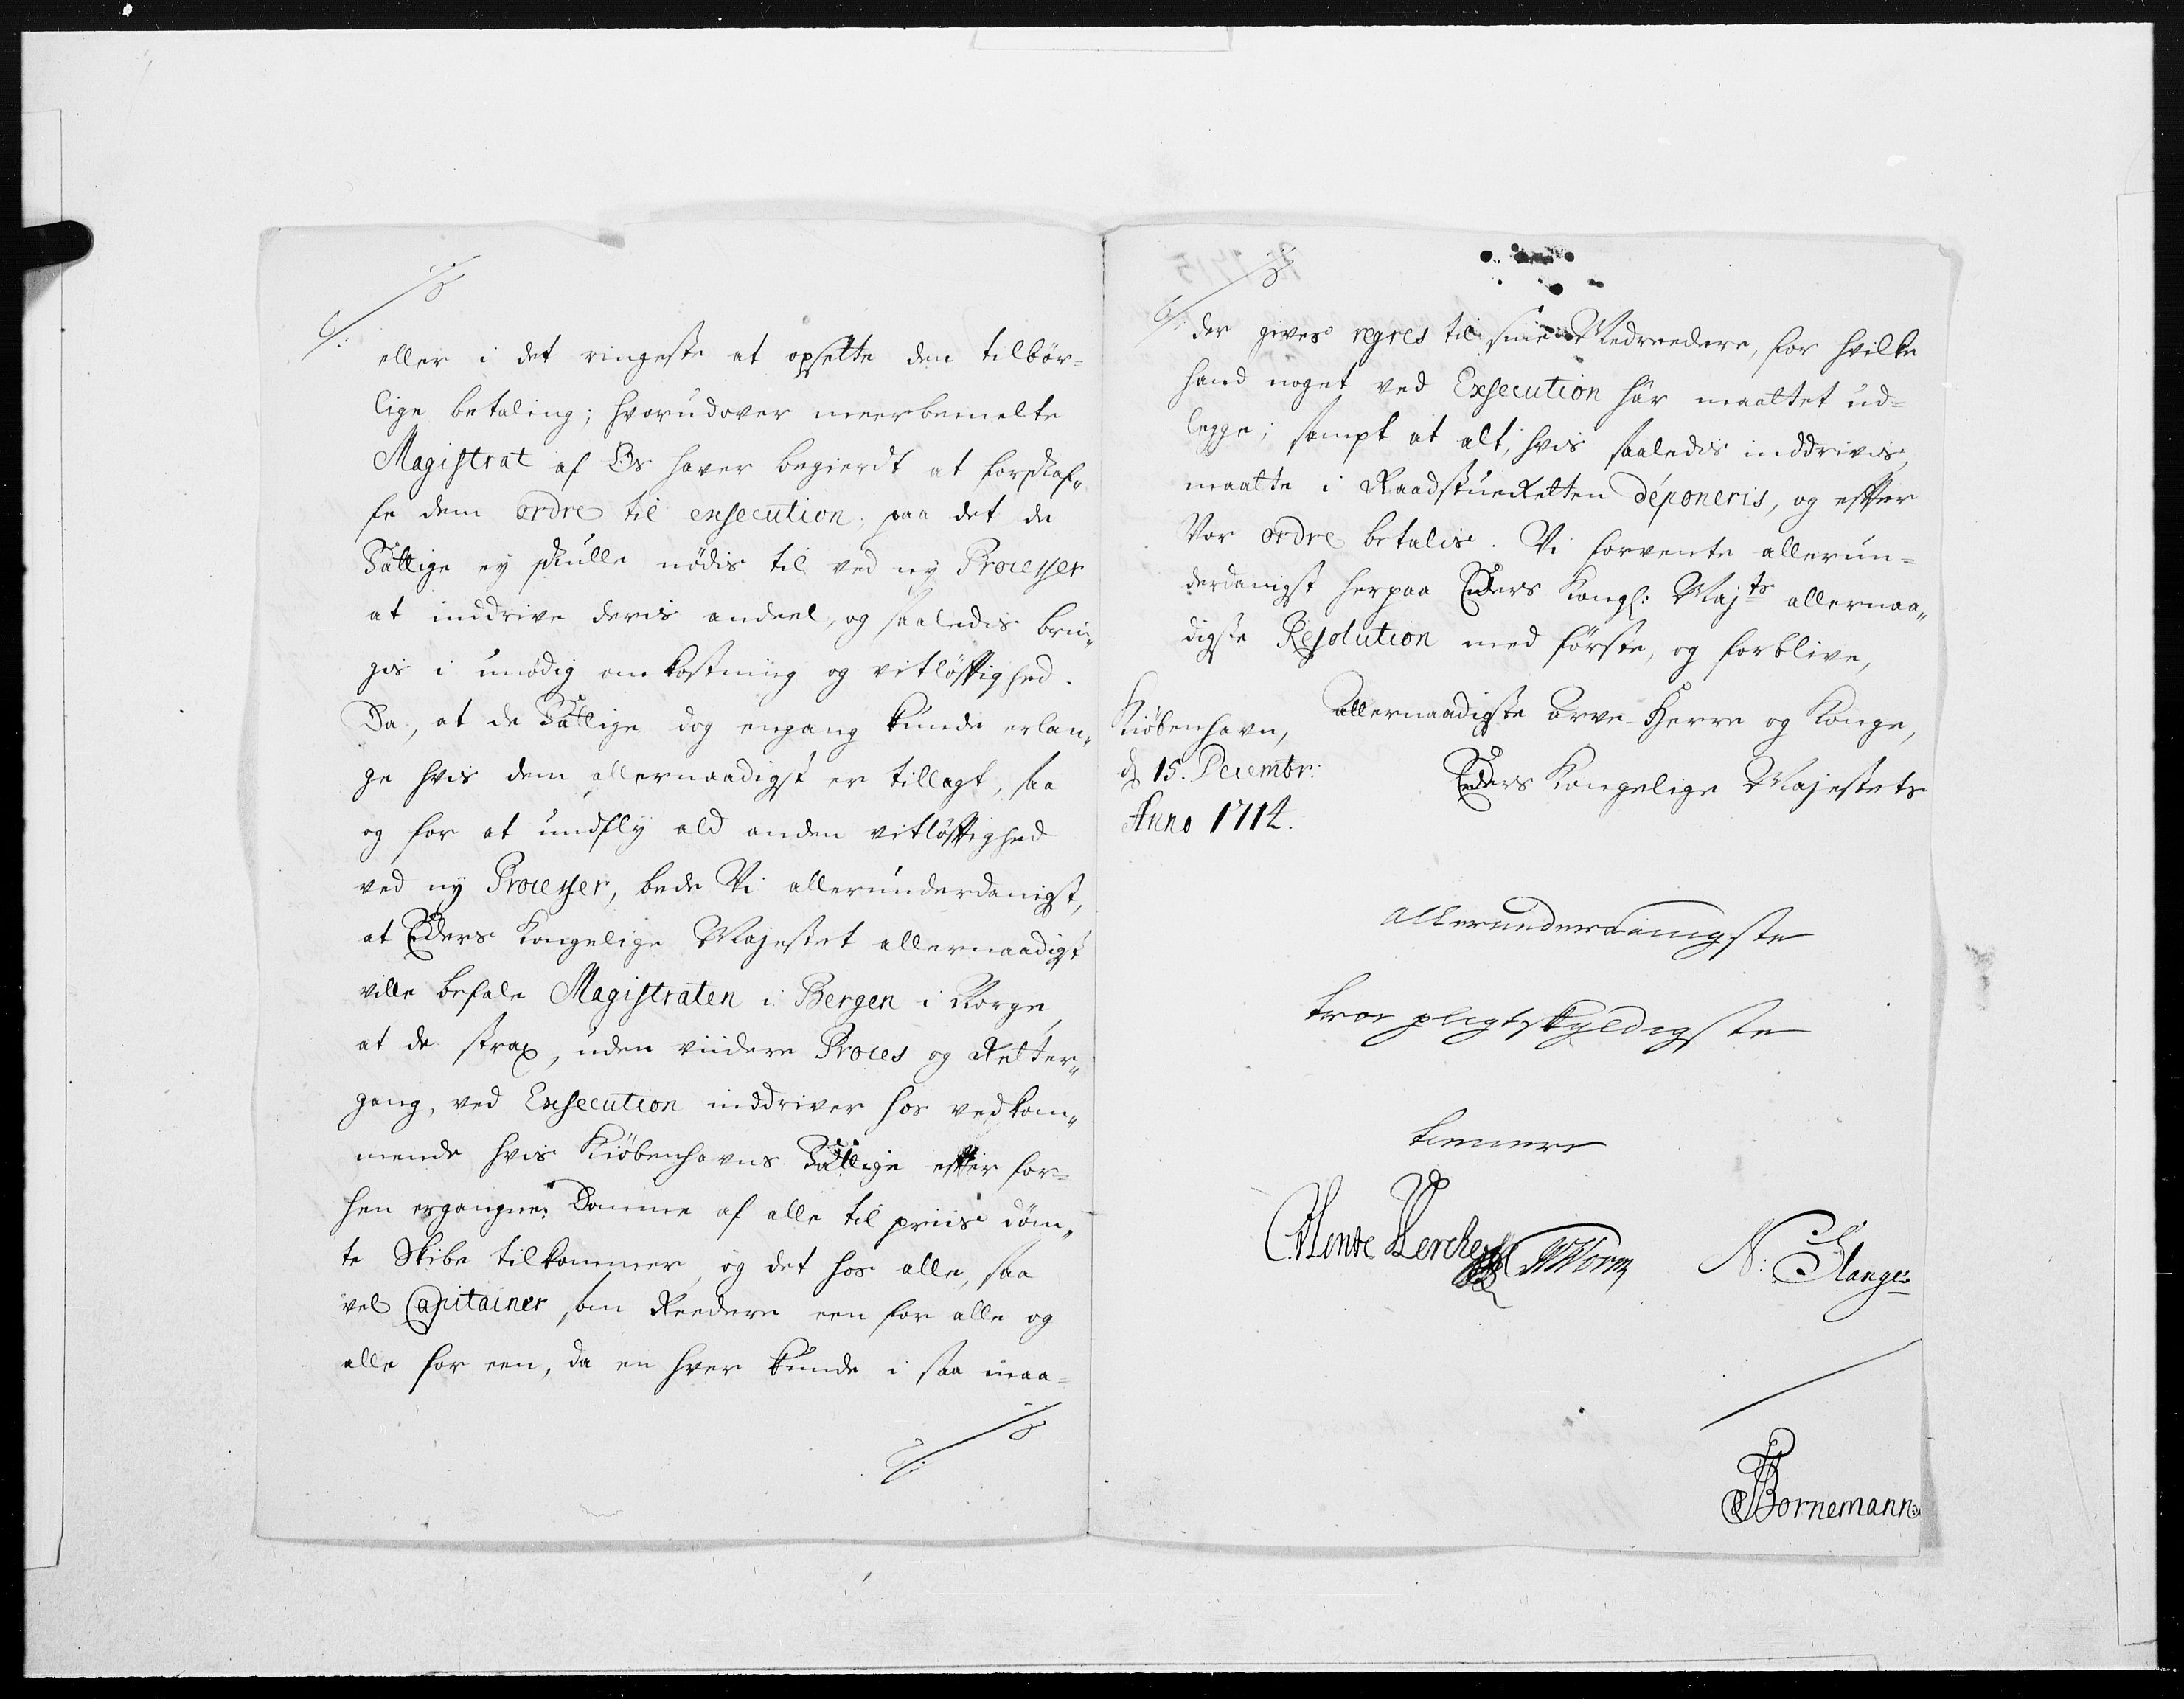 eller i det ringeste at opsette den tilbör-
lige betaling; hvorudover meerbemelte
Magistrat af Os haver begierdt at forskaf„
fe dem ordre til exsecution, paa det de
Fattige ey skulle nödis til ved ny Processer
at inddrive deris andeel, og saaledis brin„
gis i unödig omkostning og vitlöftighed.
Da, at de Fattige dog engang kunde erlan„
ge hvis dem allernaadigst er tillagt, saa
og for at undfly ald anden vitlöftighed
ved ny Processer, bede Vi allerunderdanigst,
at Eders Kongelige Majestet allernaadigst
ville befale Magistraten i Bergen i Norge,
at de strax, uden viidere Proces og Retter„
gang, ved Exsecution inddriver hos vedkom„
mende hvis Kiöbenhavns Fattige efter for-
hen ergangne Domme af alle til priis döm„
te Skibe tilkommer, og det hos alle, saa
vel Capitainer som Reedere een for alle og
alle for een, da en hver kunde i saa maa-
der gives regres til sine Medreedere, for hvilke
hand noget ved Exsecution har maattet ud-
legge; sampt at alt, hvis saaledis inddrivis,
maatte i Raadstue Retten déponeris, og efter
Vor ordre betalis. Vi forvente allerun-
derdanigst herpaa Eders Kongl: Majts allernaa„
digste Resolution med förste, og forblive,
Allernaadigste Arve-Herre og Konge,
Kiöbenhavn,
d 15. Decembr:
Anno 1714.
Eders Kongelige Majestets
allerunderdanigste
troe pligtskyldigste
tienere
Lerche
Worm
N: Slange
Bornemann